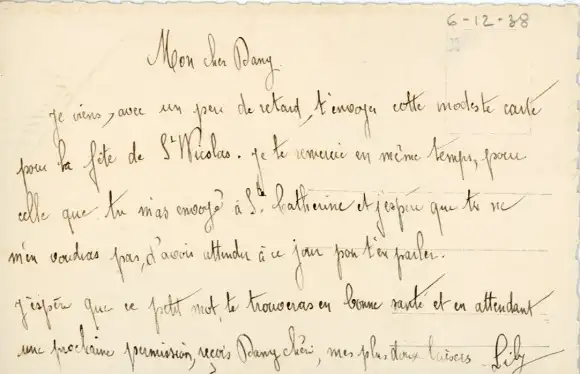 6-12-38
Mon cher Dany.
Je viens, avec un peu de retard, t'envoyer cette modeste carte
pour la fête de St Nicolas. Je te remercie en même temps, pour
celle que tu m'as envoyé à Ste Catherine et j'espère que tu ne
m'en voudras pas, d'avoir attendu à ce jour pour t'en parler.
J'espère que ce petit mot, te trouveras en bonne santé et en attendant
une prochaine permission, reçois Dany chéri, mes plus doux baisers Lily